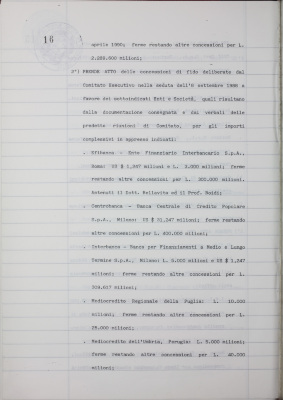 16
aprile 1990; ferme restando altre concessioni per L.
2.220.600 milioni;
2°) PRENDE ATTO delle concessioni di fido deliberate dal
Comitato Esecutivo nella seduta dell'8 settembre 1988 a
favore dei sottoindicati Enti e Società, quali risultano
dalla documentazione consegnata e dai verbali delle
predette riunioni di Comitato, per gli importi
complessivi in appresso indicati:
. Efibanca - Ente Finanziario Interbancario S.p.A.,
Roma: US $ 1,247 milioni e L. 3.000 milioni; ferme
restando altre concessioni per L. 305.000 milioni.
Astenuti il Dott. Pellavita ed il Prof. Nuidi;
. Centrobanca - Banca Centrale di Credito Popolare
S.p.A., Milano: US $ 31,247 milioni; ferme restando
altre concessioni per L. 400.000 milioni;
. Interbanca - Banca per Finanziamenti a Medio e Lungo
Termine S.p.A., Milano: L. 5.000 milioni e US $ 1,247
milioni; ferme restando altre concessioni per L.
304.617 milioni;
. Mediocredito Regionale della Puglia: L. 10.000
milioni; ferme restando altre concessioni per L.
25.000 milioni;
. Mediocredito dell'Umbria, Perugia: L. 5.000 milioni;
ferme restando altre concessioni per L. 40.000
milioni;